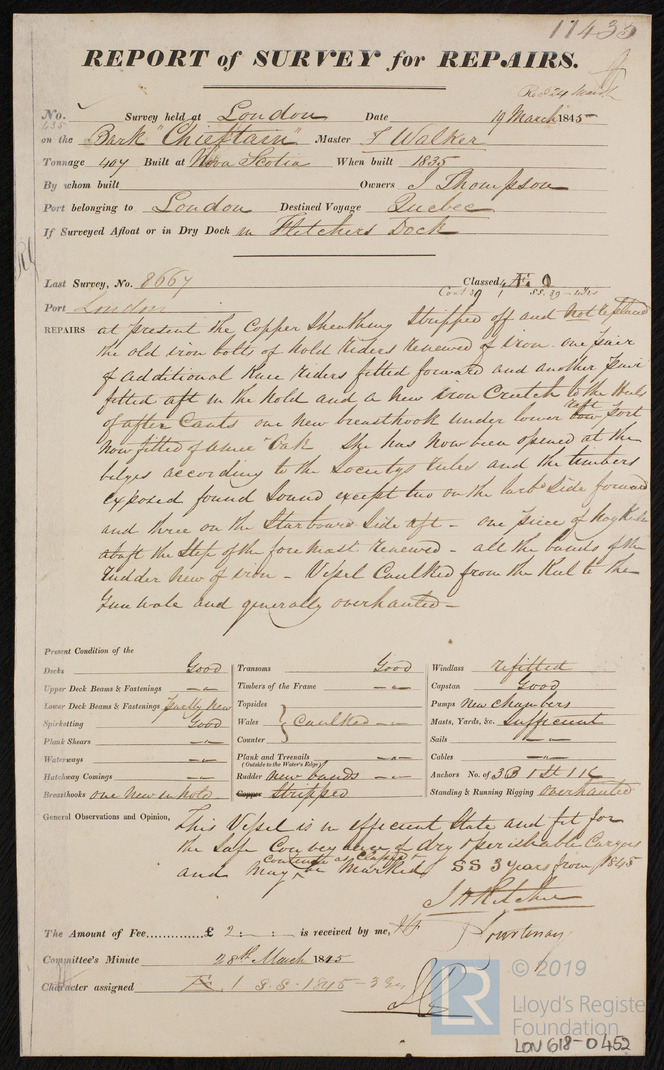 11435
REPORT of SURVEY for REPAIRS.
No. Survey held at London Date 19 March 1845
on the Bark "Chieftain" Master J Walker
Tonnage 407 Built at Nova Scotia When built 1835
By whom built Owners J Thompson
Port belonging to London Destined Voyage Quebec
If Surveyed Afloat or in Dry Dock in Fletchers Dock
Last Survey, No. 8667 Classed
Port London
REPAIRS at present the Copper Sheathing Stripped off and not replaced
the old iron bolts of hold Riders renewed of iron one pair
of additional Knee riders fitted forward and another pair
fitted aft in the hold and a new iron Crutch to the heels
of after Cants one new breasthook under lower deck
now fitted of Oak She has now been opened at the
bilges according to the Societys rules and the timbers
exposed found Sound except two on the larbd Side forward
and three on the Starboard Side aft - one piece of
abaft the Step of the fore Mast renewed - all the bands of the
rudder new of iron - Vessel Caulked from the Keel to the
Gunwale and generally overhauled -
Present Condition of the
Decks Good
Upper Deck Beams & Fastenings
Lower Deck Beams & Fastenings Partly New
Spirketting Good
Plank Shears
Waterways
Hatchway Comings
Breasthooks one New in hold
Transoms Good
Timbers of the Frame
Topsides
Wales Caulked
Counter
Plank and Treenails
(Outside to the Water's Edge)
Rudder New bands
Copper Stripped
Windlass refitted
Capstan Good
Pumps New Chambers
Masts, Yards, &c. Sufficient
Sails
Cables
Anchors No. of 3 B 1 St 1 K
Standing & Running Rigging Overhauled
General Observations and Opinion, This Vessel is in efficient State and fit for
the Safe Conveyance of dry & perishable Cargoes
continue as Classed &
and May be Marked SS 3 years from 1845
The Amount of Fee £ 2 : - : - is received by me,
Committee's Minute 28th March 1845
Character assigned Æ 1 S.S. 1845 - 3 Ys
© 2019
LR
Lloyd's Register
Foundation
LON 618-0452